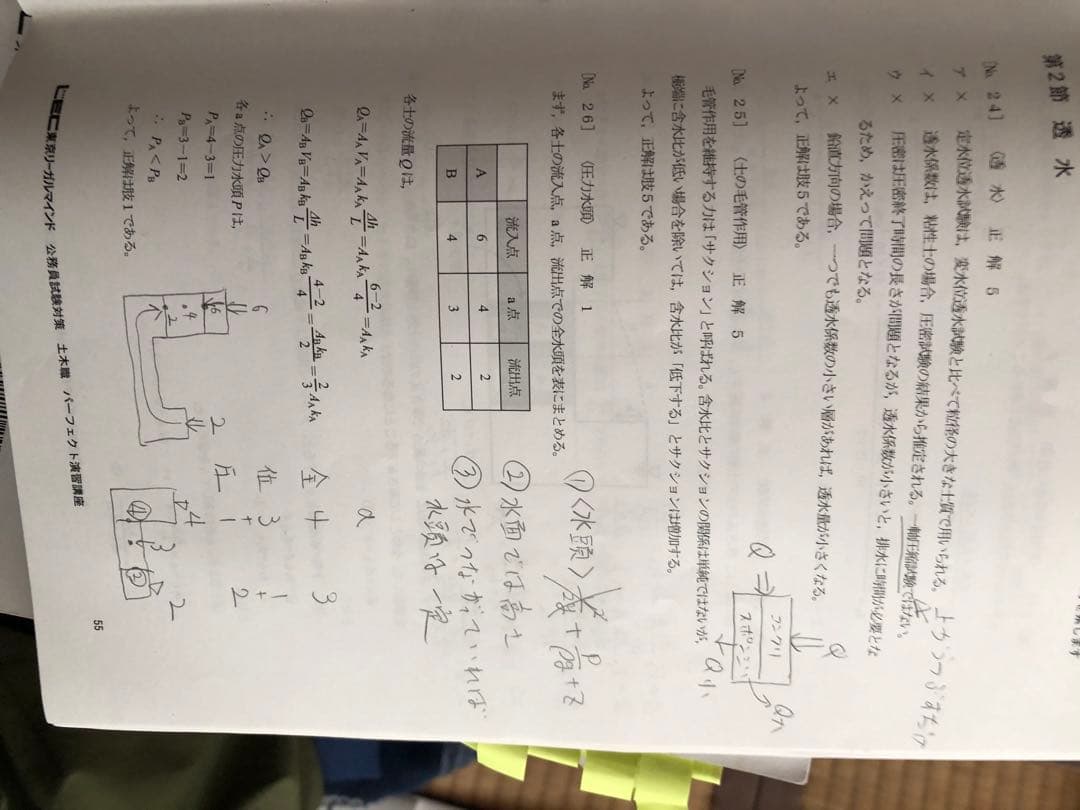 第2節 透 水
[No. 24] (透 水) 正 解 5
ア × 定水位透水試験は、変水位透水試験と比べて粒径の大きな土質で用いられる。
イ × 透水係数は、粘性土の場合、圧密試験の結果から推定される。一軸圧縮試験ではない。
ウ × 圧密は圧密終了時間の長さが問題となるが、透水係数が小さいと、排水に時間が必要とな
るため、かえって問題となる。
エ × 鉛直方向の場合、一つでも透水係数の小さい層があれば、透水量が小さくなる。
よって、正解は肢5である。
Q
Q ⇒
コンクリ
スポンジ
Q小
Q大
[No. 25] (土の毛管作用) 正 解 5
毛管作用を維持する力は「サクション」と呼ばれる。含水比とサクションの関係は単純ではないが、
極端に含水比が低い場合を除いては、含水比が「低下する」とサクションは増加する。
よって、正解は肢5である。
[No. 26] (圧力水頭) 正 解 1
まず、各土の流入点、a点、流出点での全水頭を表にまとめる。
流入点 a点 流出点
A 6 4 2
B 4 3 2
①<水頭> v²/2g + P/ρg + z
②水面では高さ
③水でつながっていれば
水頭は一定
各土の流量Qは、
Q_A=A_A V_A=A_A k_A Δh/L=A_A k_A (6−2)/4=A_A k_A
Q_B=A_B V_B=A_B k_B Δh/L=A_B k_B (4−2)/4=A_B k_B/2=2/3 A_A k_A
∴ Q_A>Q_B
各a点の圧力水頭Pは、
P_A=4−3=1
P_B=3−1=2
∴ P_A<P_B
よって、正解は肢1である。
a
全 4 3
位 3 1
+ +
圧 1 2
6
6
4
2
2
4
3
2
④
②
LEC東京リーガルマインド 公務員試験対策 土木職 パーフェクト演習講座
55